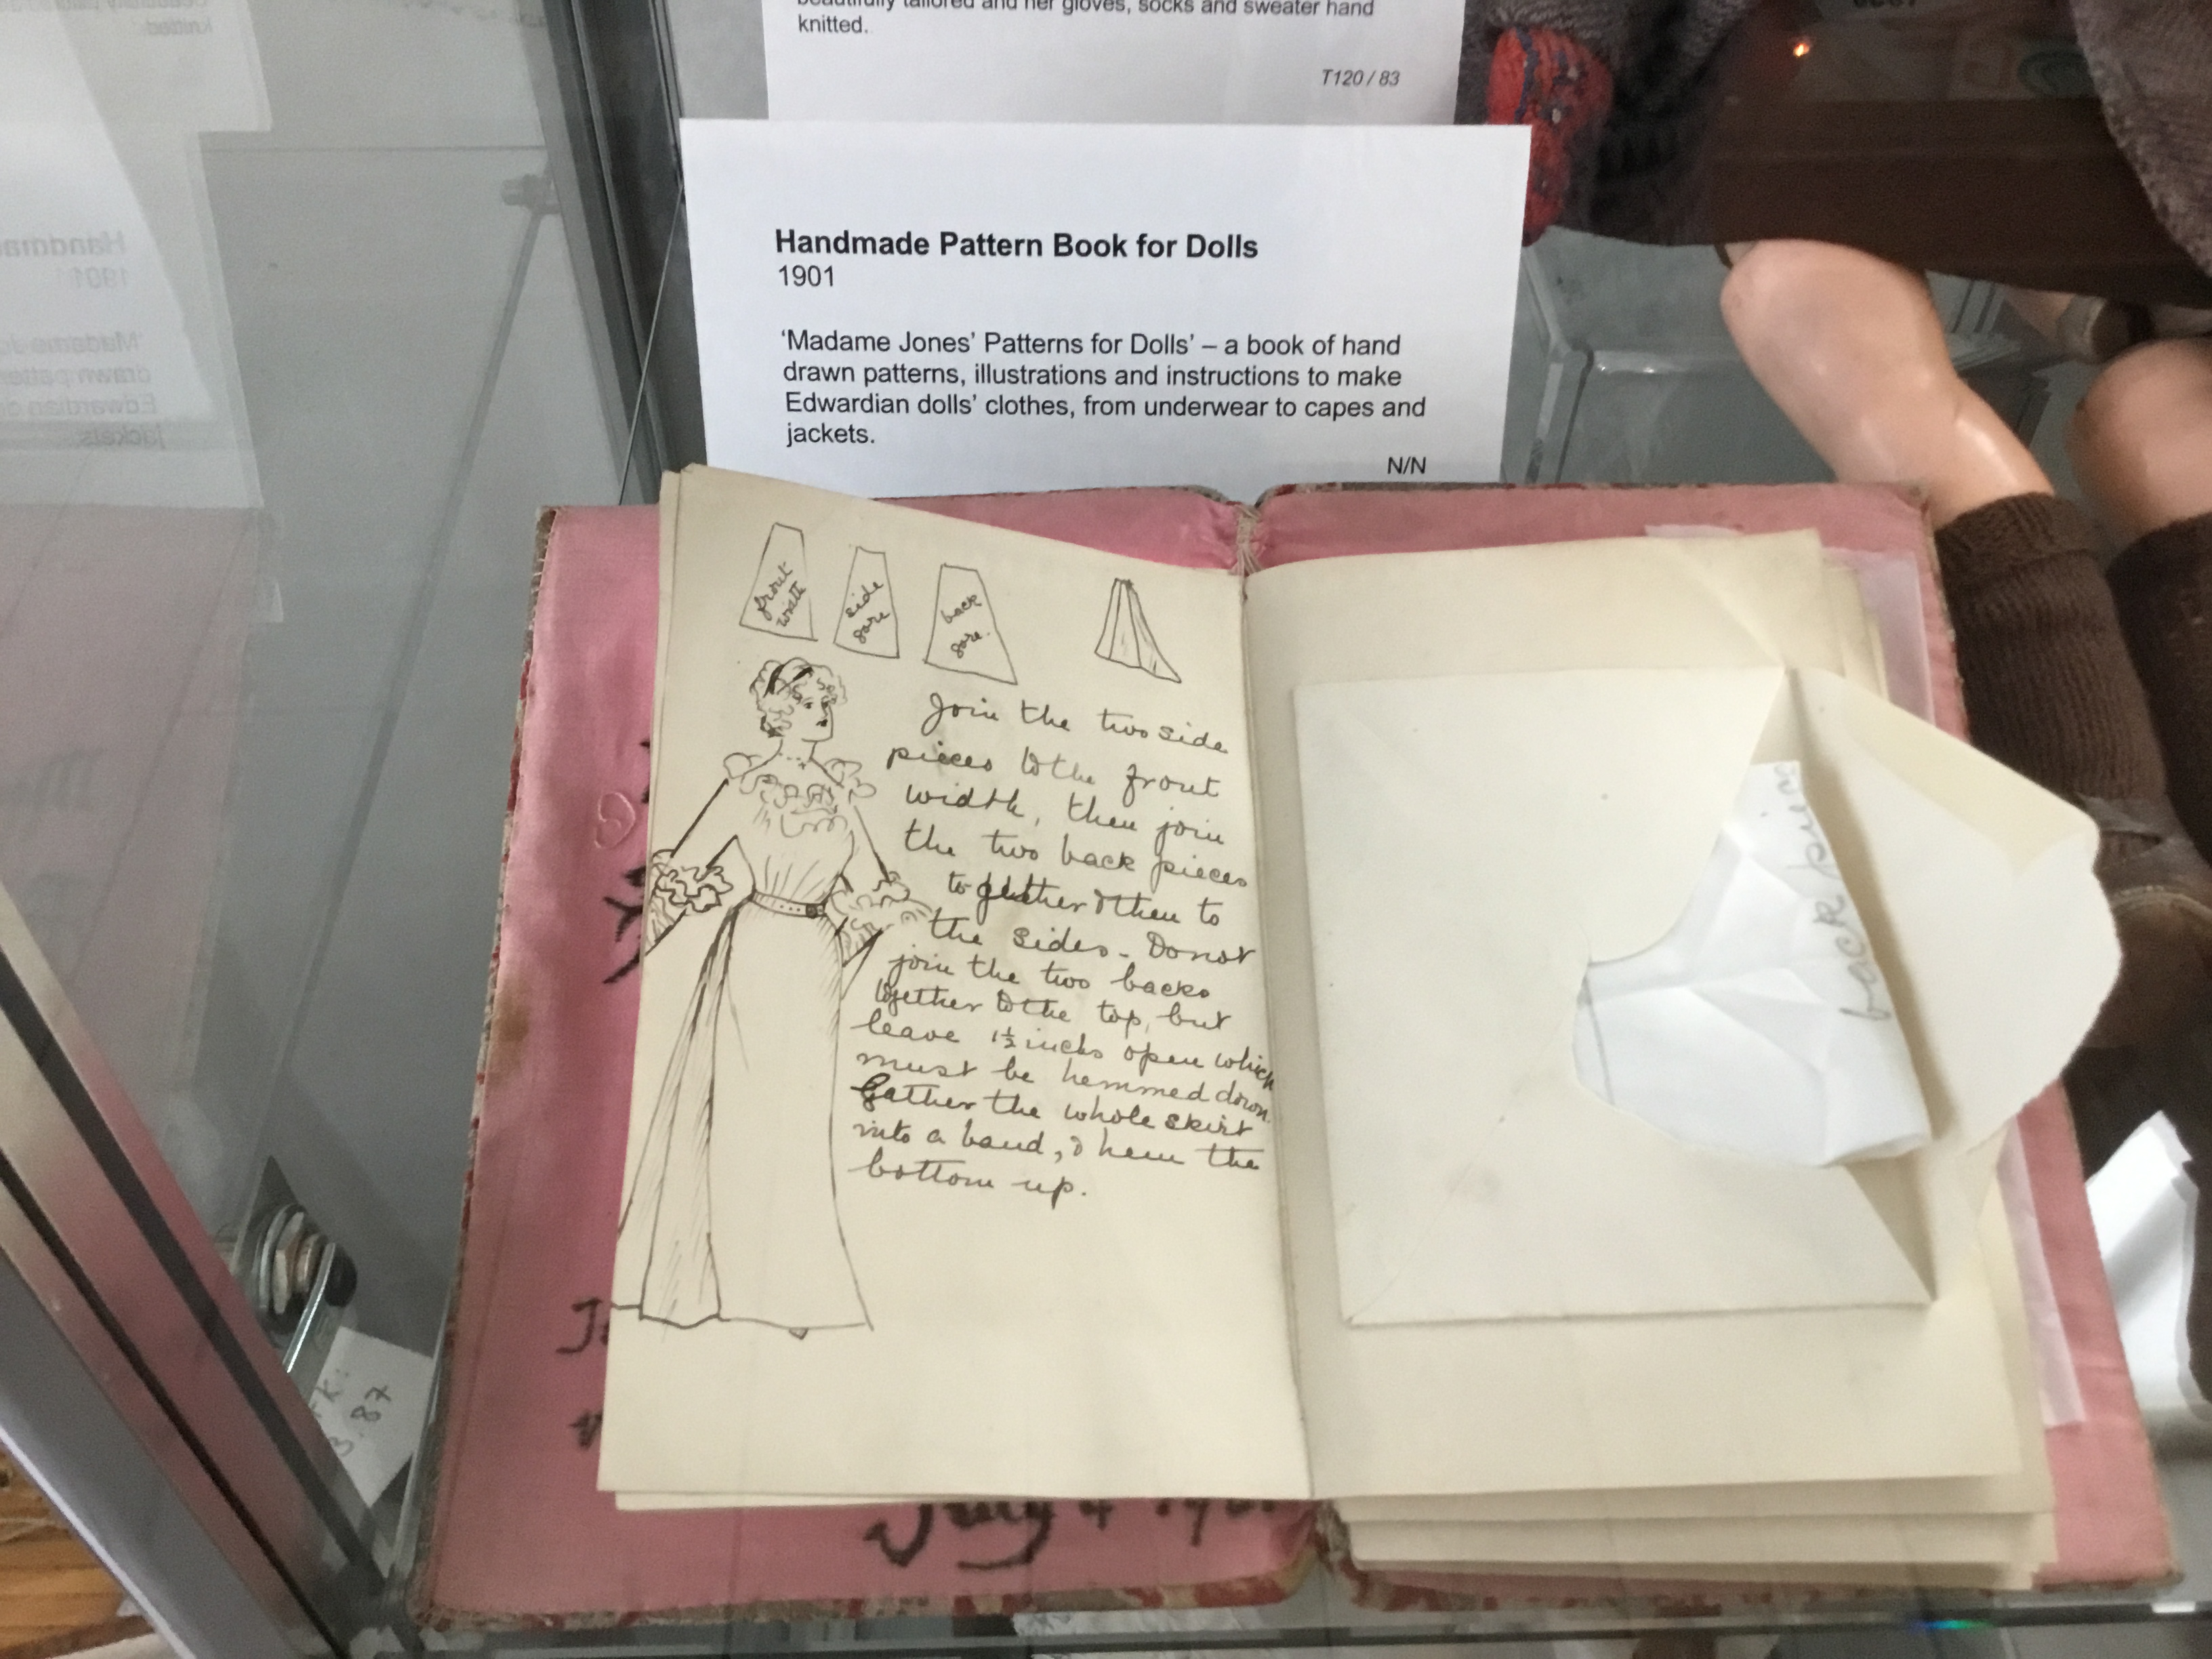 beautifully tailored and her gloves, socks and sweater hand
knitted.
T120 / 83
Handmade Pattern Book for Dolls
1901
‘Madame Jones’ Patterns for Dolls’ – a book of hand
drawn patterns, illustrations and instructions to make
Edwardian dolls’ clothes, from underwear to capes and
jackets.
N/N
front
width
side
gore
back
gore.
Join the two side
pieces to the front
width, then join
the two back pieces
together & then to
the sides - Do not
join the two backs
together to the top, but
leave 1½ inches open which
must be hemmed down.
Gather the whole skirt
into a band, & hem the
bottom up.
back piece
July 4 1901
87